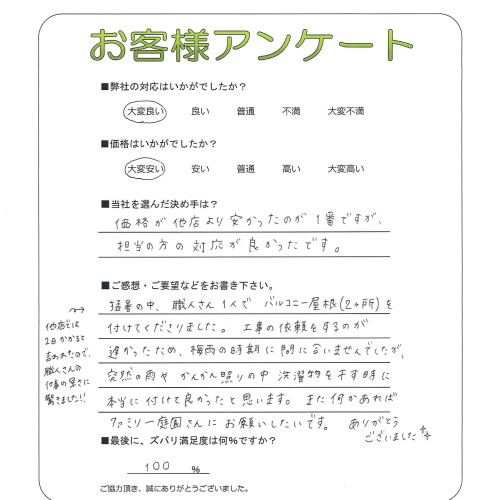 お客様アンケート
■弊社の対応はいかがでしたか？
大変良い 良い 普通 不満 大変不満
■価格はいかがでしたか？
大変安い 安い 普通 高い 大変高い
■当社を選んだ決め手は？
価格が他店より安かったのが1番ですが、
担当の方の対応が良かったです。
■ご感想・ご要望などをお書き下さい。
猛暑の中、職人さん1人で バルコニー屋根(2ヶ所)を
付けてくださりました。工事の依頼をするのが
遅かったため、梅雨の時期に間に合いませんでしたが、
突然の雨や かんかん照りの中 洗濯物を干す時に
本当に付けて良かったと思います。また何かあれば
ファミリー庭園さんにお願いしたいです。 ありがとう
ございました
他店では
2日かかると
言われたので、
職人さんの
仕事の早さに
驚きました!!
■最後に、ズバリ満足度は何%ですか？
100 %
ご協力頂き、誠にありがとうございました。